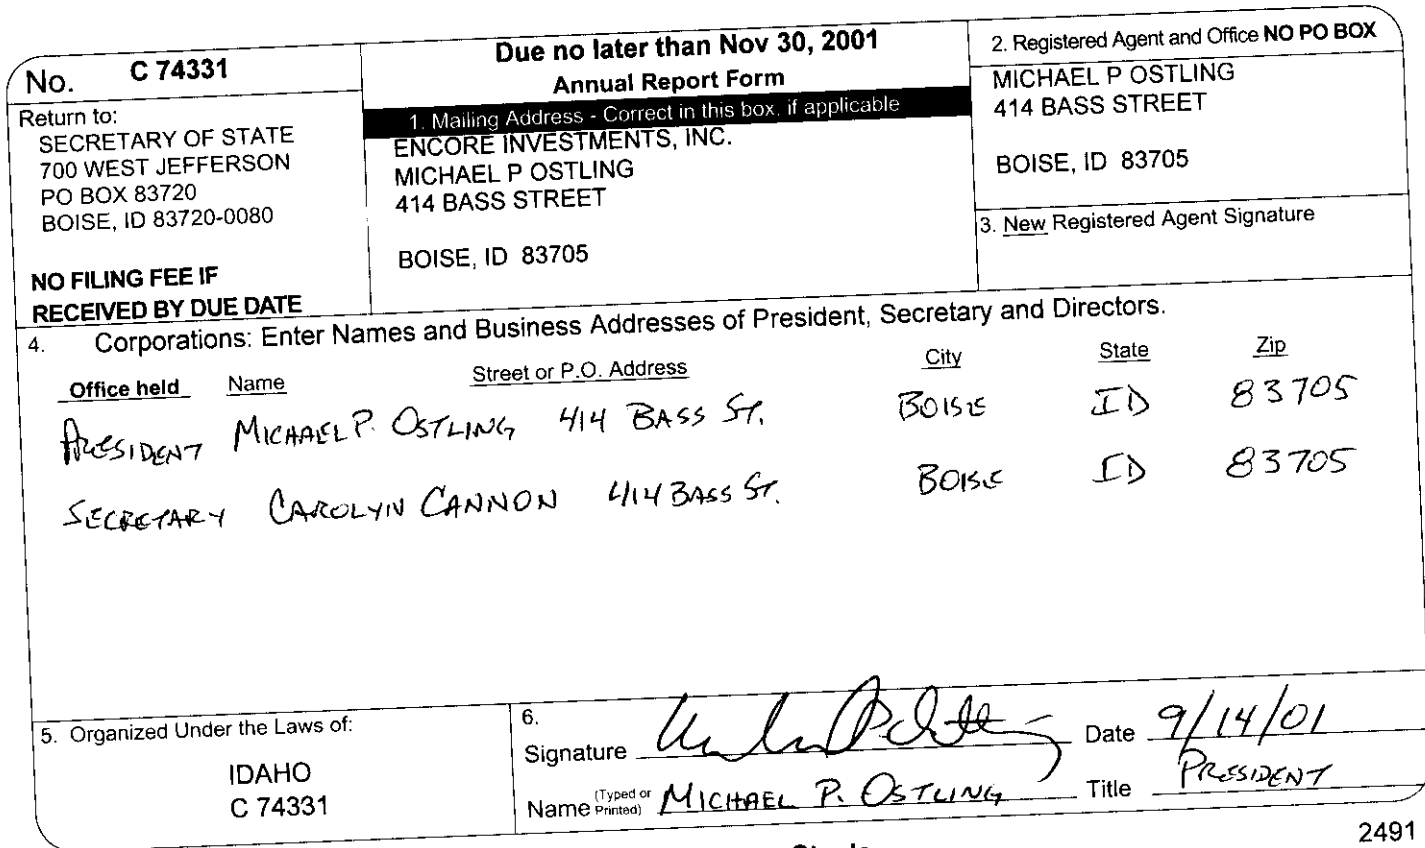 No. C 74331
Return to:
SECRETARY OF STATE
700 WEST JEFFERSON
PO BOX 83720
BOISE, ID 83720-0080
NO FILING FEE IF
RECEIVED BY DUE DATE
Due no later than Nov 30, 2001
Annual Report Form
1. Mailing Address - Correct in this box, if applicable
ENCORE INVESTMENTS, INC.
MICHAEL P OSTLING
414 BASS STREET
BOISE, ID 83705
2. Registered Agent and Office NO PO BOX
MICHAEL P OSTLING
414 BASS STREET
BOISE, ID 83705
3. New Registered Agent Signature
4. Corporations: Enter Names and Business Addresses of President, Secretary and Directors.
Office held Name Street or P.O. Address City State Zip
PRESIDENT MICHAEL P. OSTLING 414 BASS ST. BOISE ID 83705
SECRETARY CAROLYN CANNON 414 BASS ST. BOISE ID 83705
5. Organized Under the Laws of:
IDAHO
C 74331
6.
Signature Date 9/14/01
Name (Typed or Printed) MICHAEL P. OSTLING Title PRESIDENT
2491